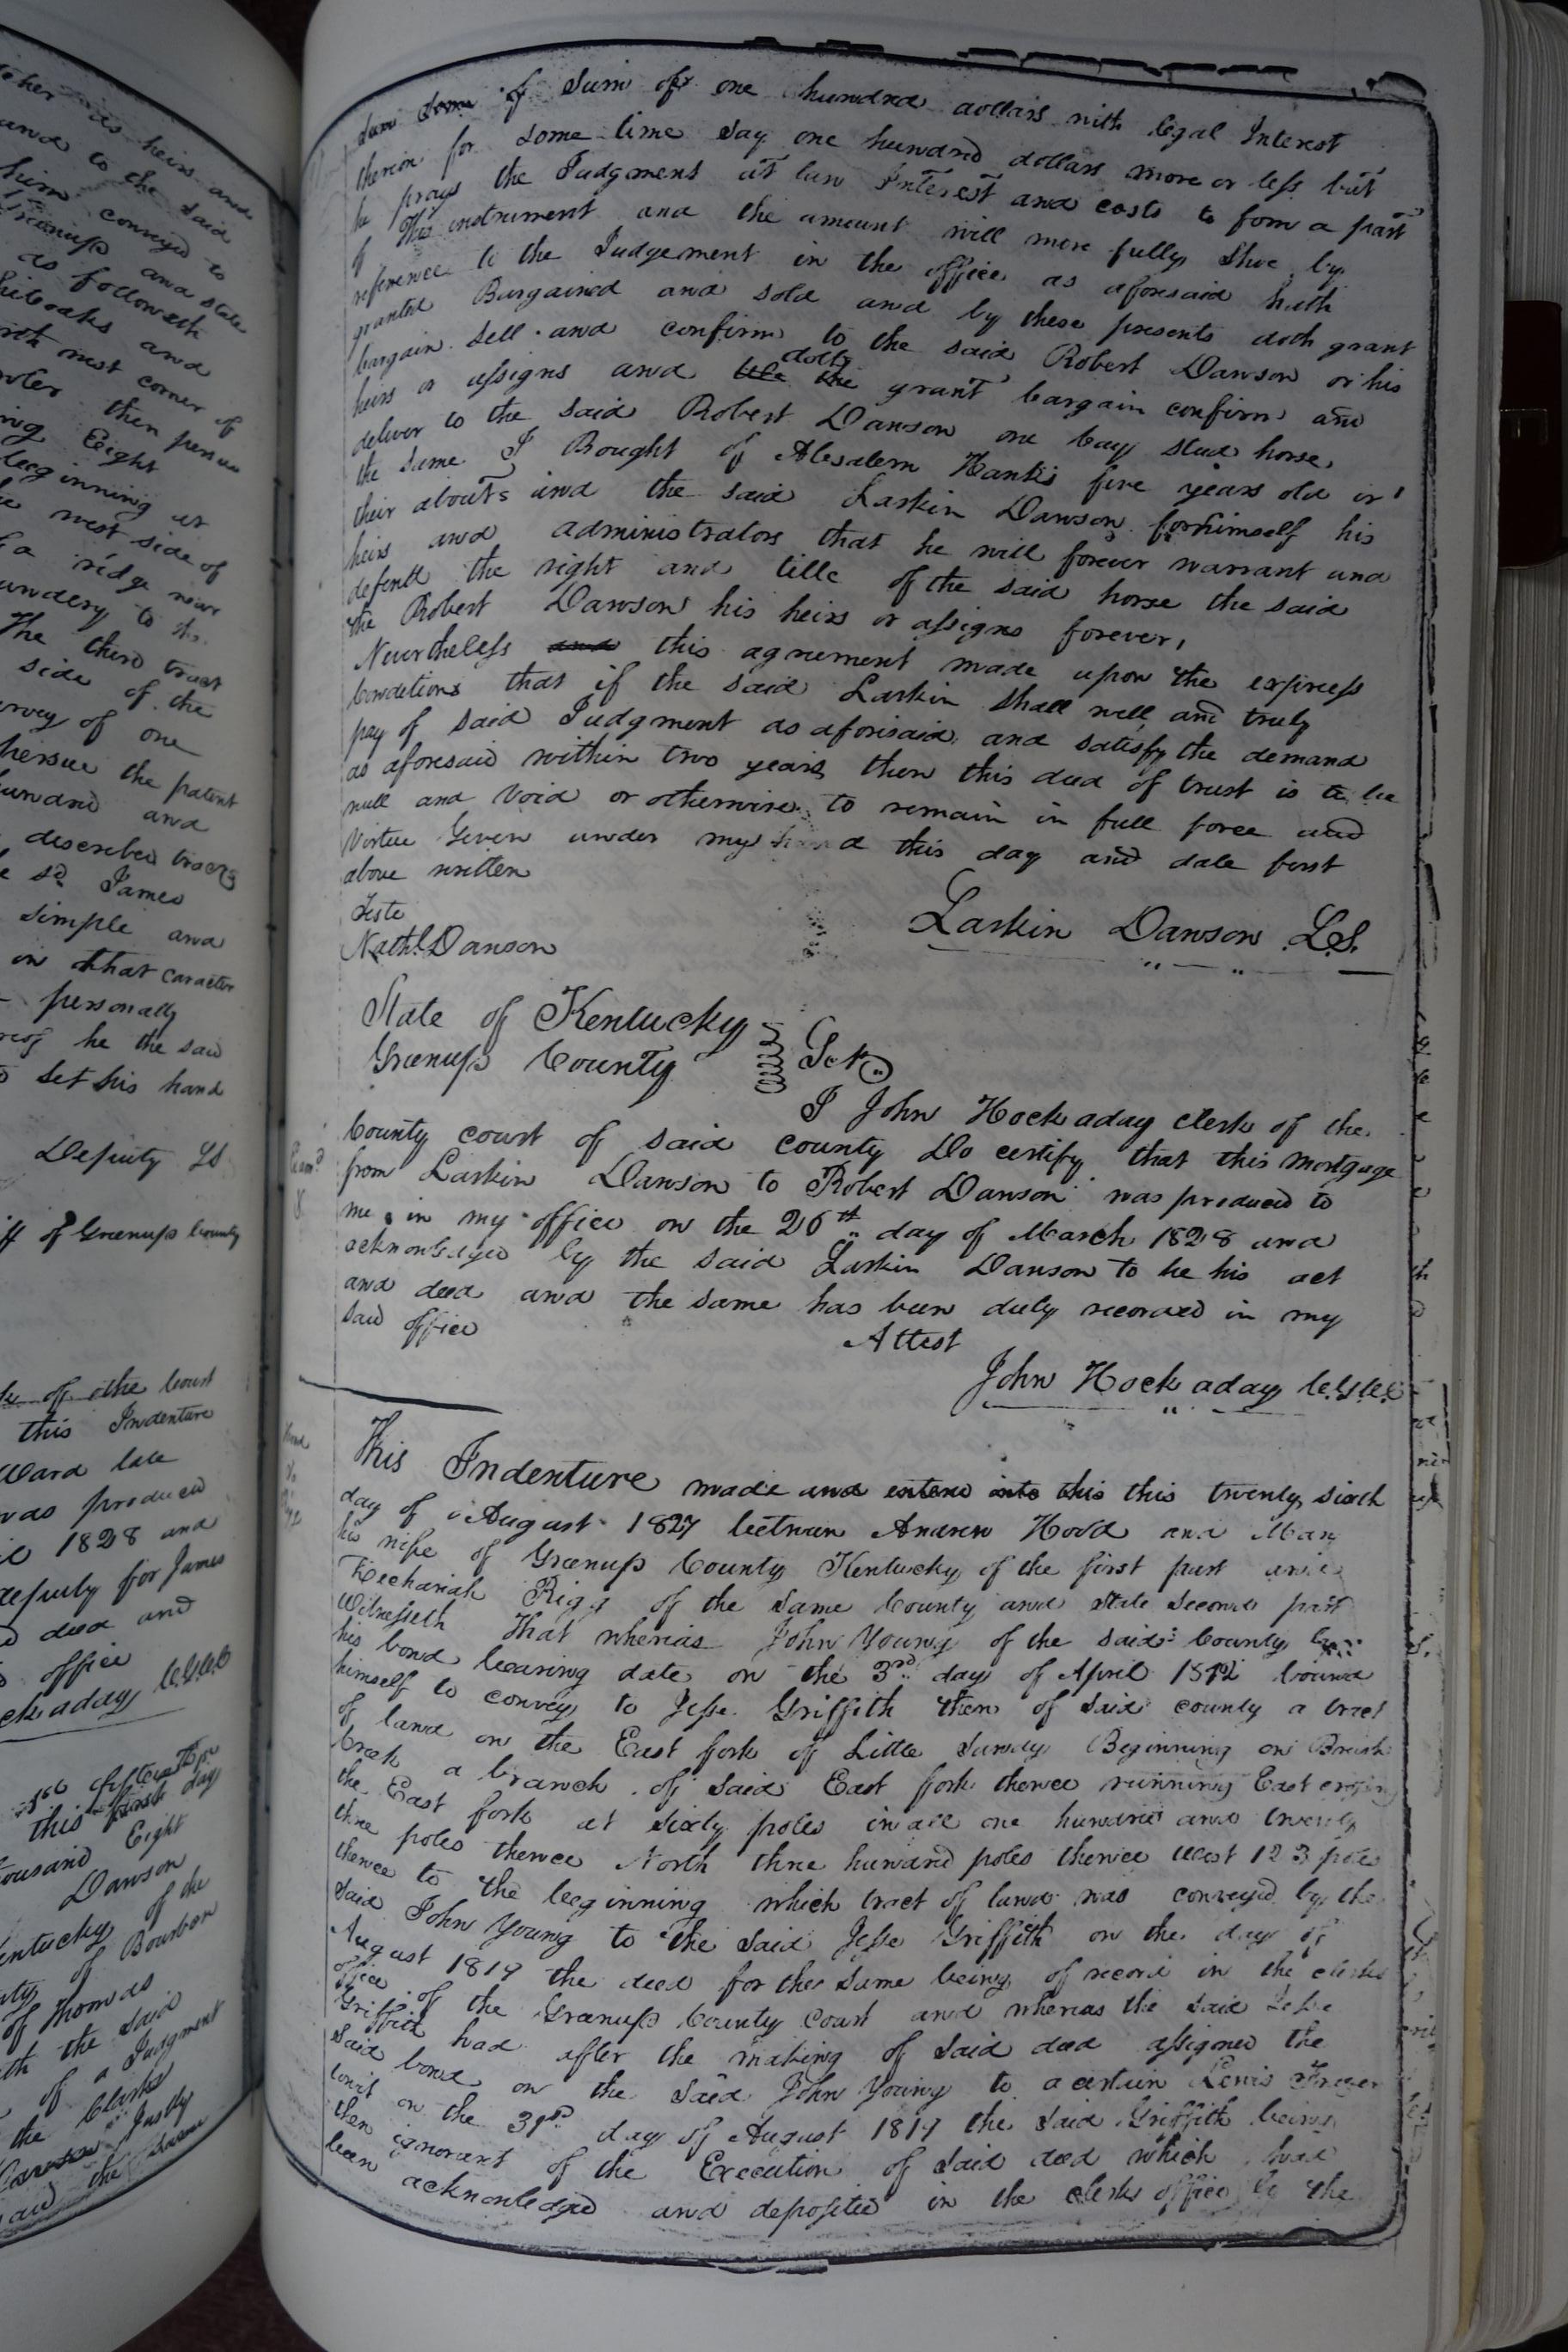 to her his heirs and
and to the said
him conveyed to
Greenup and state
as followeth
and
north west corner of
then
ing Eight
beginning at
west side of
a ridge near
The third tract
side of the
survey of one
the patent
hundred and
described tracts
sd. James
simple and
in that caracter
personally
he the said
set his hand
Deputy LS
of Greenup County
of the Court
this Indenture
Ward late
was produced
1828 and
deputy for James
deed and
office
this first day
thousand Eight
Dawson
Kentucky of the
of Bourbon
of Thomas
the said
of a Judgment
the Clerks
Justly
and the
sum of one hundred dollars with legal Interest
therein for some time say one hundred dollars more or less but
he prays the Judgment at law Interest and costs to form a part
of this instrument and the amount will more fully Shew by
reference to the Judgement in the office as aforesaid hath
granted Bargained and sold and by these presents doth grant
bargain sell and confirm to the said Robert Dawson or his
heirs or assigns and doth grant bargain confirm and
deliver to the said Robert Dawson one bay stud horse
the same I Bought of Absalem Hanks five years old or
their abouts and the said Larkin Dawson for himself his
heirs and administrators that he will forever warrant and
defend the right and title of the said horse the said
the Robert Dawson his heirs or assigns forever,
Nevertheless and this agreement made upon the express
Conditions that if the said Larkin shall well and truly
pay of said Judgment as aforisaid and satisfy the demand
as aforesaid within two years then this deed of trust is to be
null and void or otherwise to remain in full force and
Virtue Given under my hand this day and date first
above written
Teste
Nathl. Dawson
Larkin Dawson L.S.
State of Kentucky
Greenup County Sct
I John Hockaday clerk of the
County court of said county Do certify that this mortgage
from Larkin Dawson to Robert Dawson was produced to
me in my office on the 26th day of March 1828 and
acknowledged by the said Larkin Dawson to be his act
and deed and the same has been duly recorded in my
said office
Attest
John Hockaday C.G.C.C
This Indenture made and entered into this this twenty sixth
day of August 1827 between Andrew Hood and Mary
his wife of Greenup County Kentucky of the first part and
Zechariah Rigg of the same County and state second part
Witnesseth That wherias John Young of the said County by
his bond bearing date on the 3rd day of April 1812 bound
himself to convey to Jesse Griffith then of said county a tract
of land on the East fork of Little Sandy Beginning on Brush
Creek a branch of said East fork thence running East crossing
the East fork at sixty poles in all one hundred and twenty
three poles thence North three hundred poles thence West 123 poles
thence to the beginning which tract of land was conveyed by the
said John Young to the said Jesse Griffith on the day of
August 1819 the deed for the same being of record in the clerks
office of the Greenup County Court and wherias the said Jesse
Griffith had after the making of said deed assigned the
said bond on the said John Young to a certain Lewis
towit on the 31st day of August 1819 the said Griffith being
then ignorant of the Execution of said deed which had
been acknowledged and deposited in the clerks office by the